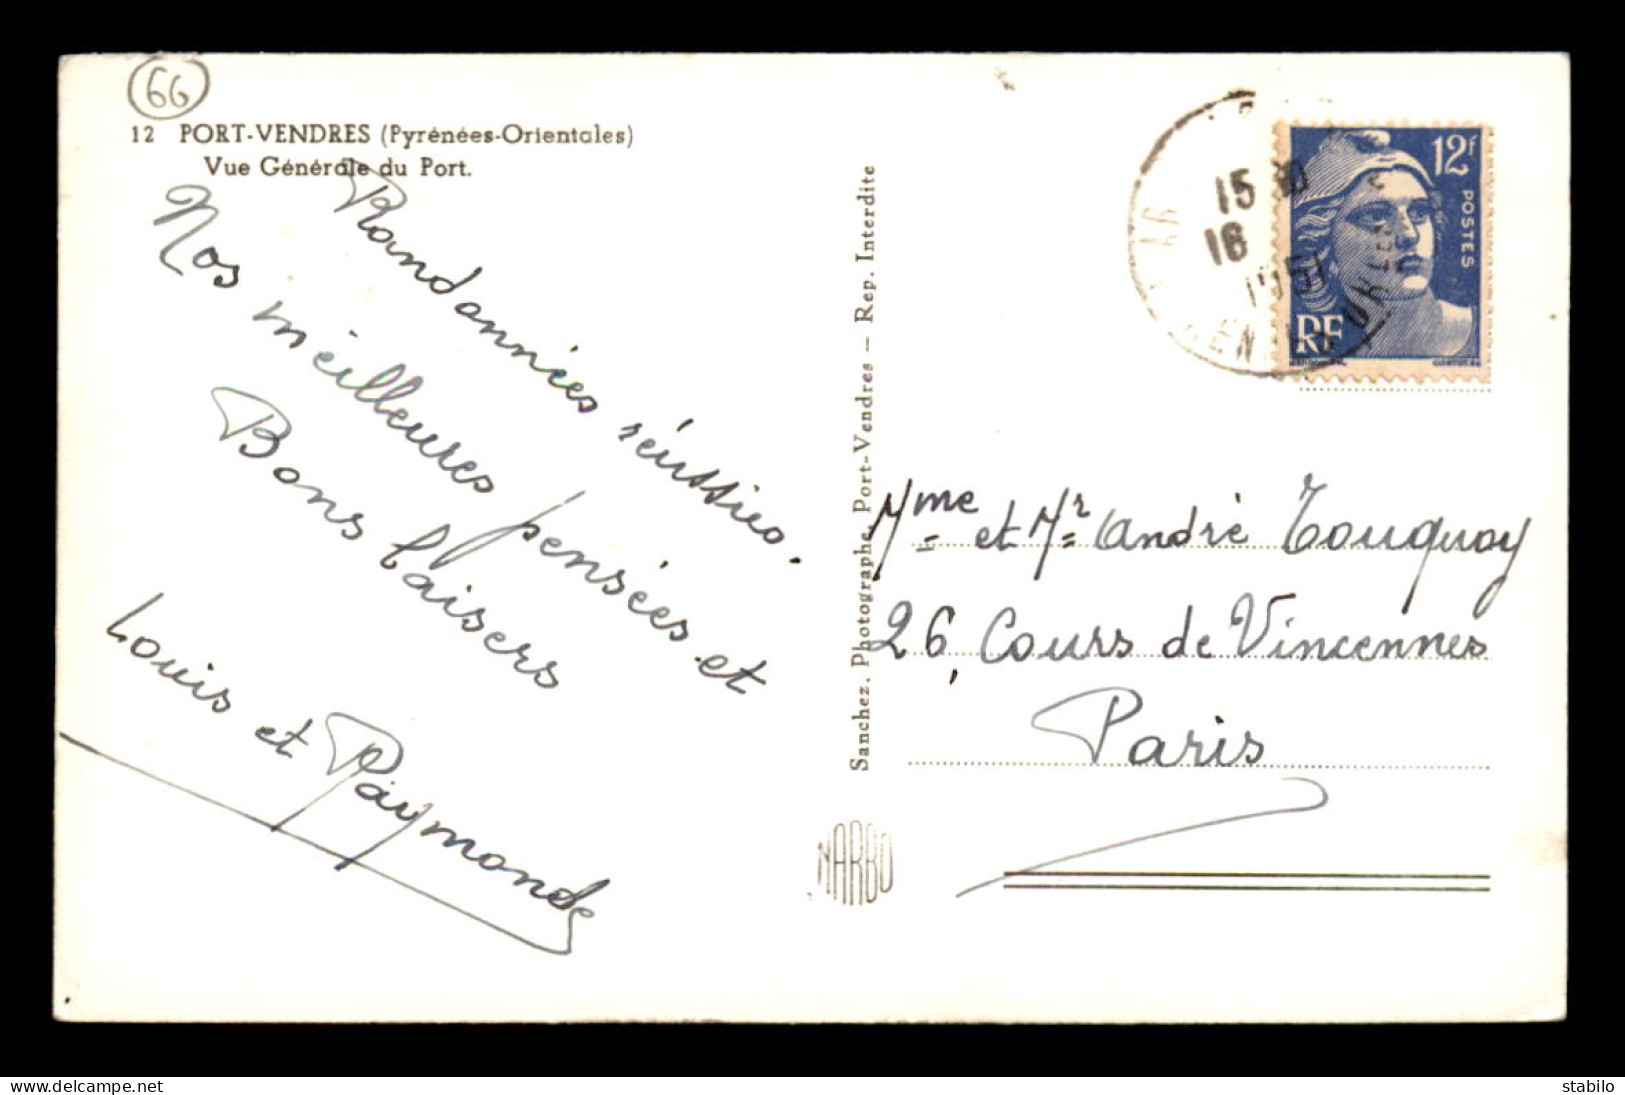 66
12 PORT-VENDRES (Pyrénées-Orientales)
Vue Générale du Port.
Randonnées réussies.
Nos meilleures pensées et
Bons baisers
Louis et Raymonde
Sanchez, Photographe, Port-Vendres – Rep. Interdite
NARBO
15
16
1951
12F
POSTES
RF
Mme et Mr André Touquoy
26, Cours de Vincennes
Paris
www.delcampe.net
stabilo